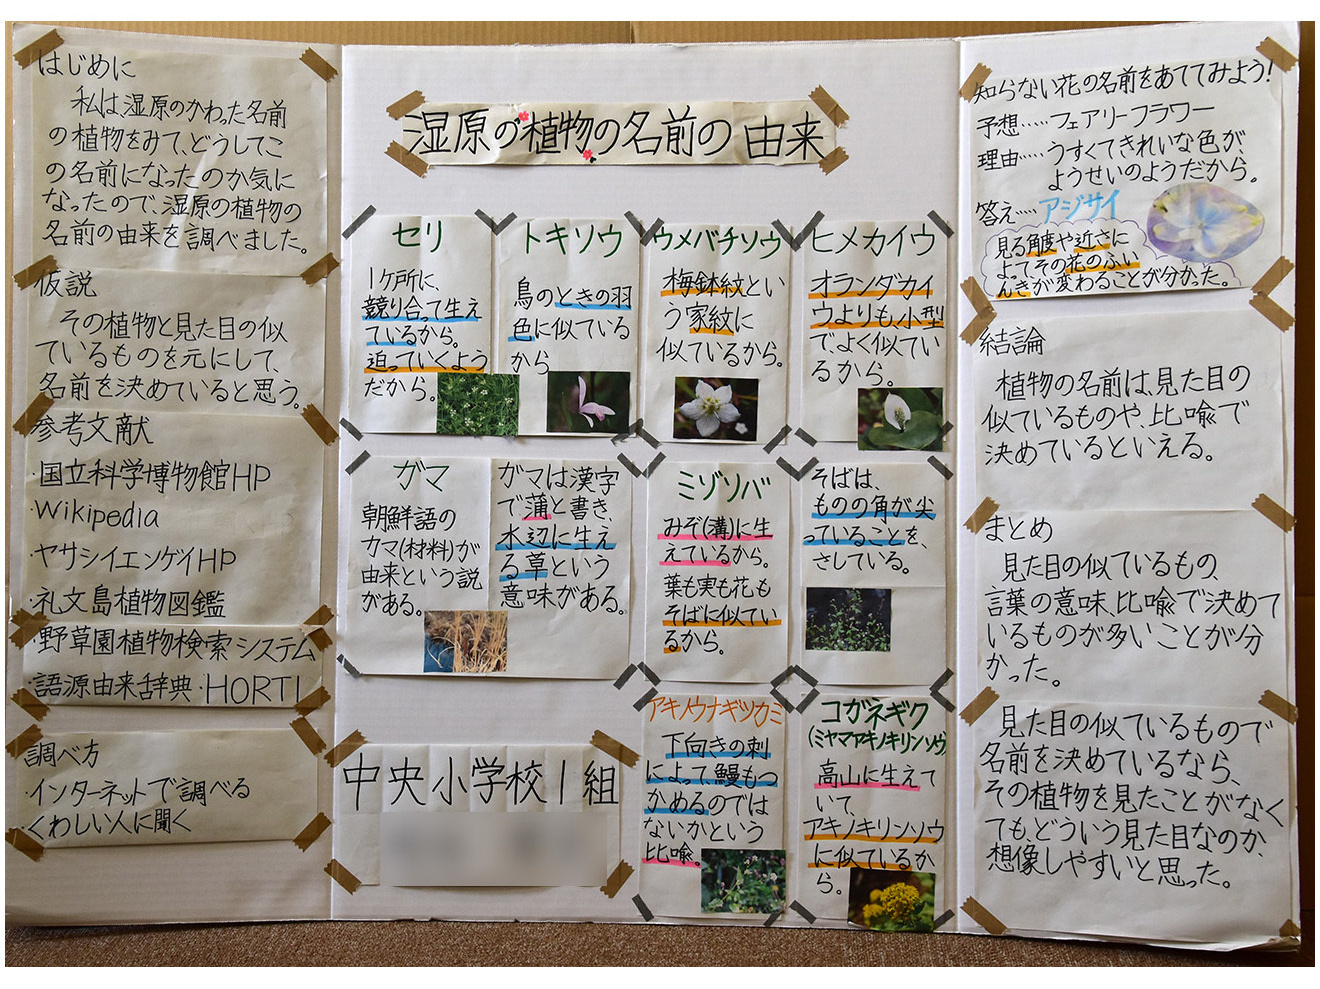 はじめに
私は湿原のかわった名前
の植物をみて、どうしてこ
の名前になったのか気に
なったので、湿原の植物の
名前の由来を調べました。
仮説
その植物と見た目の似
ているものを元にして、
名前を決めていると思う。
参考文献
・国立科学博物館HP
・Wikipedia
・ヤサシイエンゲイHP
・礼文島植物図鑑
・野草園植物検索システム
・語源由来辞典・HORTI
調べ方
・インターネットで調べる
・くわしい人に聞く
湿原の植物の名前の由来
セリ
1ヶ所に、
競り合って生え
ているから。
迫っていくよう
だから。
トキソウ
鳥のときの羽
色に似ている
から
ウメバチソウ
梅鉢紋とい
う家紋に
似ているから。
ヒメカイウ
オランダカイ
ウよりも、小型
で、よく似てい
るから。
ガマ
朝鮮語の
カマ(材料)が
由来という説
がある。
ガマは漢字
で蒲と書き、
水辺に生え
る草という
意味がある。
ミゾソバ
みぞ(溝)に生
えているから。
葉も実も花も
そばに似てい
るから。
そばは、
ものの角が尖
っていることを、
さしている。
アキノウナギツカミ
下向きの刺
によって、鰻もつ
かめるのでは
ないかという
比喩。
コガネギク
(ミヤマアキノキリンソウ)
高山に生えて
いて、
アキノキリンソウ
に似ているか
ら。
中央小学校1組
知らない花の名前をあててみよう!
予想‥‥フェアリーフラワー
理由‥‥うすくてきれいな色が、
ようせいのようだから。
答え‥‥アジサイ
見る角度や近さに
よってその花のふい
んきが変わることが分かった。
結論
植物の名前は、見た目の
似ているものや、比喩で
決めているといえる。
まとめ
見た目の似ているもの、
言葉の意味、比喩で決めて
いるものが多いことが分
かった。
見た目の似ているもので
名前を決めているなら、
その植物を見たことがなく
ても、どういう見た目なのか、
想像しやすいと思った。